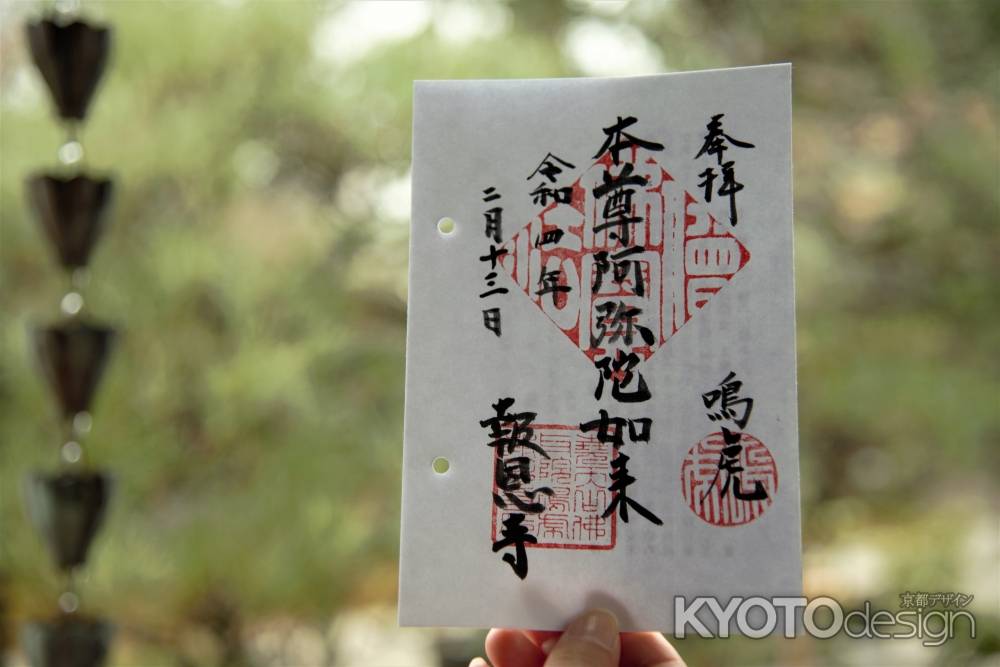 奉拝
鳴虎
本尊阿弥陀如来
令和四年
二月十三日
報恩寺
KYOTOdesign
京都デザイン